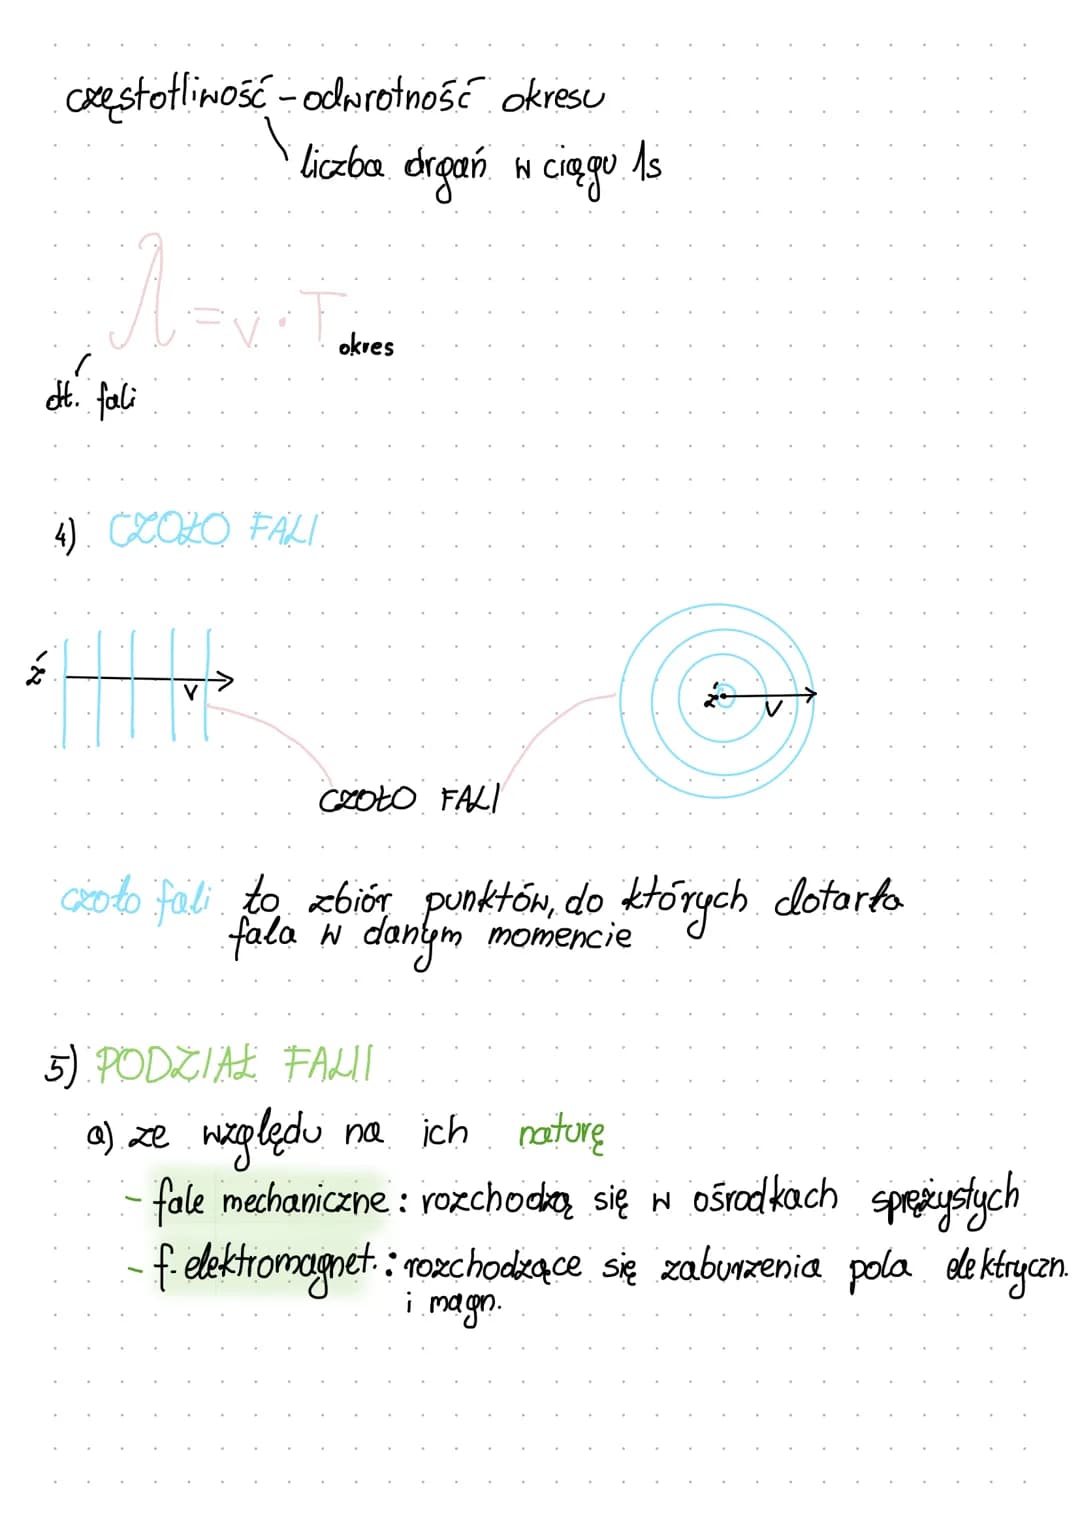 częstotliwość - odwrotność okresu
liczba drgań w ciągu 1s
λ = v · T
okres
dł. fali
4) CZOŁO FALI
ź
v
ź
v
CZOŁO FALI
czoło fali to zbiór punktów, do których dotarła
fala w danym momencie
5) PODZIAŁ FALII
a) ze względu na ich naturę
- fale mechaniczne: rozchodzą się w ośrodkach sprężystych
- f. elektromagnet.: rozchodzące się zaburzenia pola elektryczn.
i magn.